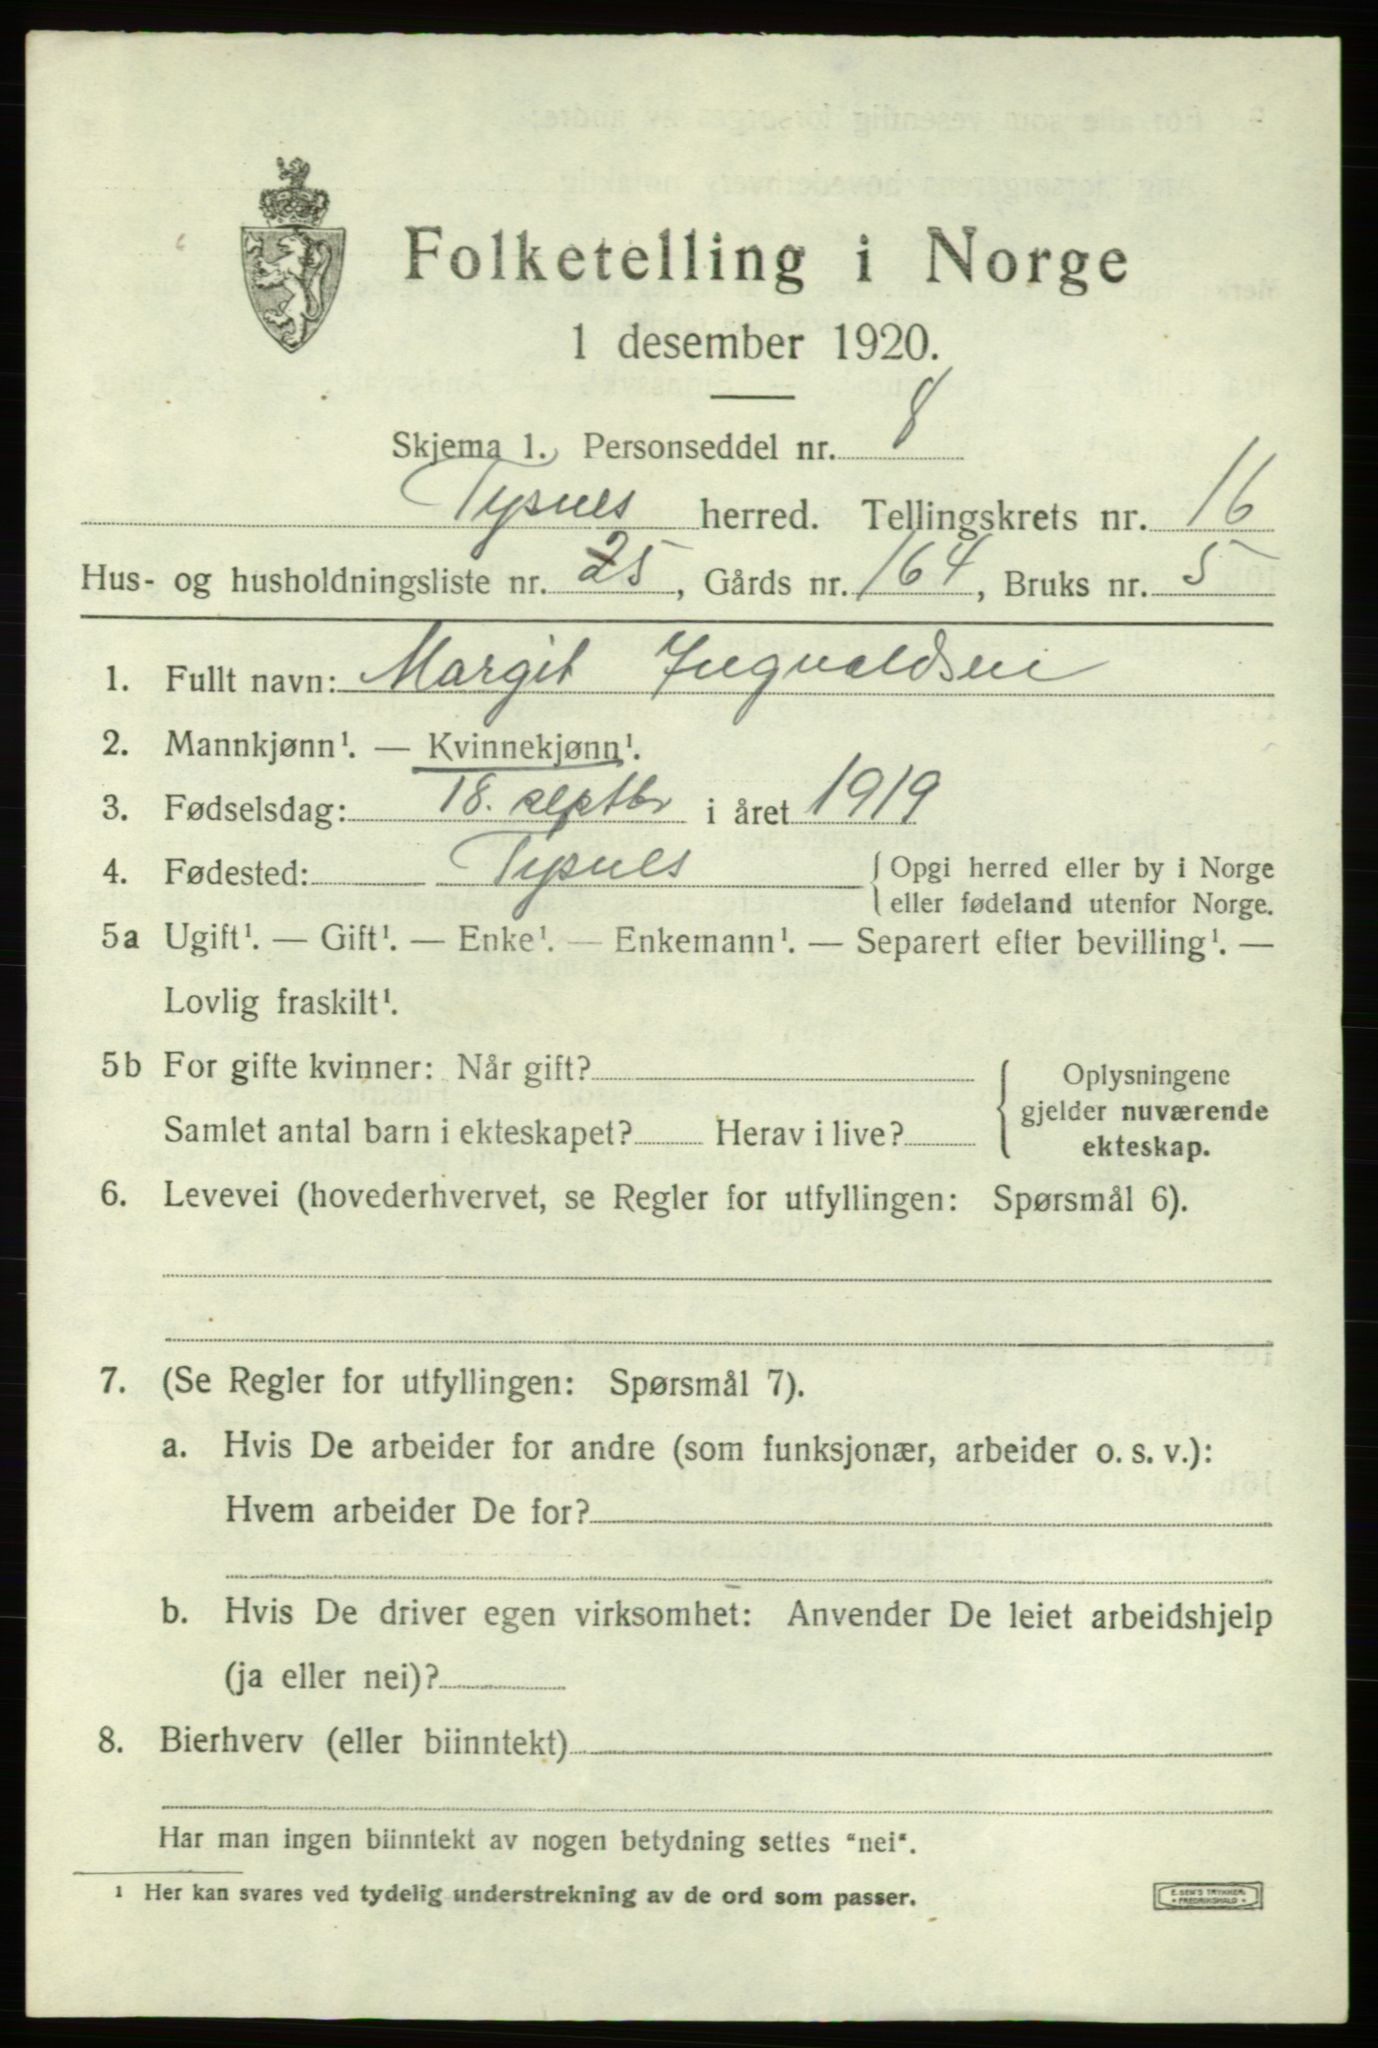 Folketelling i Norge
1 desember 1920.
Skjema 1. Personseddel nr. 8
Tysnes herred. Tellingskrets nr. 16
Hus- og husholdningsliste nr. 25, Gårds nr. 164, Bruks nr. 5
1. Fullt navn: Margit Ingvaldsen
2. Mannkjønn¹. — Kvinnekjønn¹.
3. Fødselsdag: 18. septbr i året 1919
4. Fødested: Tysnes { Opgi herred eller by i Norge
eller fødeland utenfor Norge.
5a Ugift¹. — Gift¹. — Enke¹. — Enkemann¹. — Separert efter bevilling¹. —
Lovlig fraskilt¹.
5b For gifte kvinner: Når gift?
Samlet antal barn i ekteskapet? Herav i live?
{ Oplysningene
gjelder nuværende
ekteskap.
6. Levevei (hovederhvervet, se Regler for utfyllingen: Spørsmål 6).
7. (Se Regler for utfyllingen: Spørsmål 7).
a. Hvis De arbeider for andre (som funksjonær, arbeider o. s. v.):
Hvem arbeider De for?
b. Hvis De driver egen virksomhet: Anvender De leiet arbeidshjelp
(ja eller nei)?
8. Bierhverv (eller biinntekt)
Har man ingen biinntekt av nogen betydning settes "nei".
1 Her kan svares ved tydelig understrekning av de ord som passer.